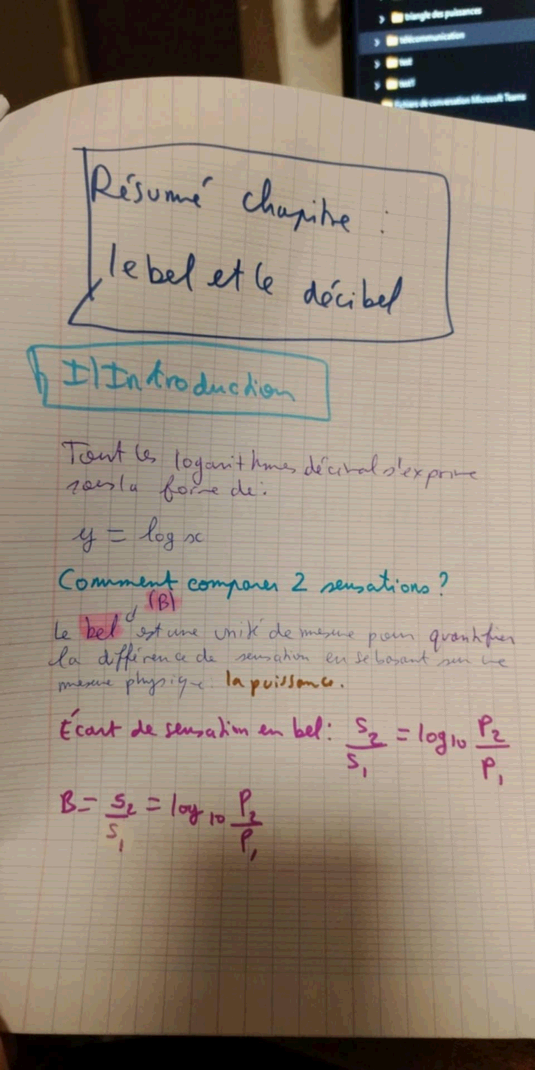 triangle des puissances
télécommunication
test
test1
Fichiers de conversation Microsoft Teams
Résumé chapitre :
le bel et le décibel
I) Introduction
Tout les logarithmes décimal s'exprime
sous la forme de :
y = log x
Comment comparer 2 sensations ?
(B)
Le bel est une unité de mesure pour quantifier
la différence de sensation en se basant sur une
mesure physique. la puissance.
Écart de sensation en bel : S₂/S₁ = log₁₀ P₂/P₁
B = S₂/S₁ = log₁₀ P₂/P₁